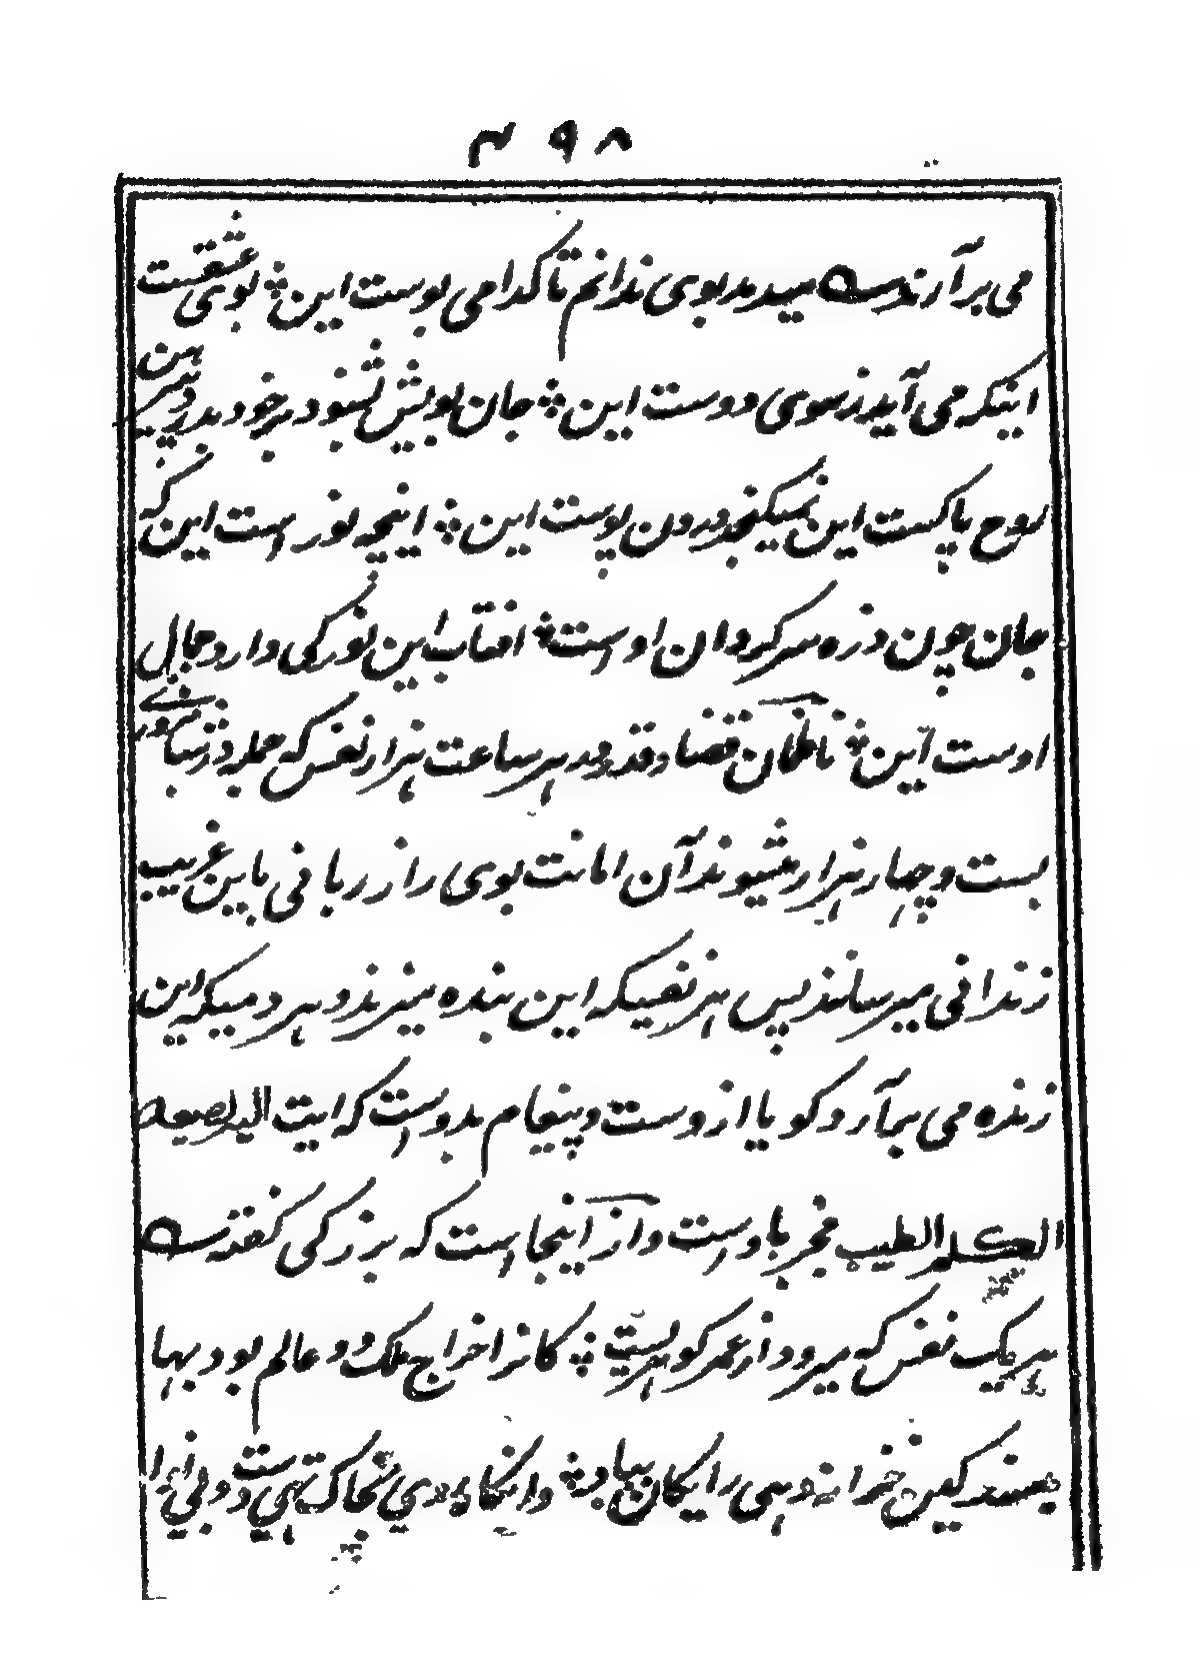 ۴۹۸
می برآرند میدمد بوی ندانم تا کدامی بوست این ؞ بوی عشقست
اینکه می آید ز سوی دوست این ؞ جان بویش بشنود بر خود بدرد پیرهن
روح پاکست این نمیکنجد درون پوست این ؞ اینچه نور است این که
جان چون ذره سرکردان اوست ؞ افتاب این نور کی دارد جمال
اوست این ؞ ناظمان قضا و قدر در هر ساعت هزار نفس که جمله در شبانروزی
بست و چهار هزار میشوند آن امانت بوی راز ربانی باین غریب
زندانی میرسانند پس هر نفسیکه این بنده میزند و هر دمیکه این
زنده می برآرد کویا از وست و پیغام بدوست که ایت الیه یصعد
الکلم الطیب مخبر باوست و از اینجا است که بزرکی کفته
هر یک نفس که میرود از عمر کوهریست ؞ کانرا خراج ملک دو عالم بود بها
مپسند کین خزانه دهی رایکان بباد ؞ وانکه روی بخاک تهی دست و بی نوا